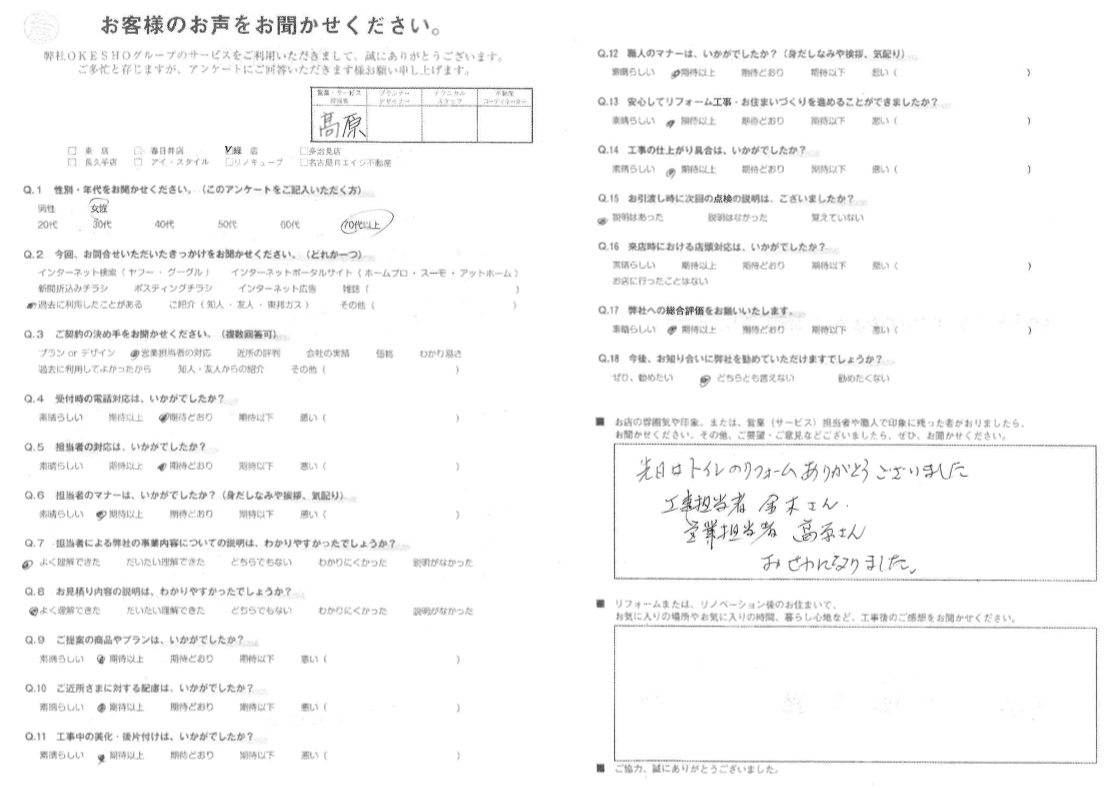 お客様のお声をお聞かせください。
弊社OKESHOグループのサービスをご利用いただきまして、誠にありがとうございます。
ご多忙と存じますが、アンケートにご回答いただきます様お願い申し上げます。
営業・サービス担当者 プランナーデザイナー テクニカルスタッフ 不動産コーディネーター
高原
□ 東 店 □ 春日井店 ☑緑 店 □多治見店
□ 長久手店 □ アイ・スタイル □リノキューブ □名古屋Rエイジ不動産
Q.1 性別・年代をお聞かせください。(このアンケートをご記入いただく方)
男性 女性
20代 30代 40代 50代 60代 70代以上
Q.2 今回、お問合せいただいたきっかけをお聞かせください。(どれか一つ)
インターネット検索(ヤフー・グーグル) インターネットポータルサイト(ホームプロ・スーモ・アットホーム)
新聞折込みチラシ ポスティングチラシ インターネット広告 雑誌( )
過去に利用したことがある ご紹介(知人・友人・東邦ガス) その他( )
Q.3 ご契約の決め手をお聞かせください。(複数回答可)
プラン or デザイン 営業担当者の対応 近所の評判 会社の実績 価格 わかり易さ
過去に利用してよかったから 知人・友人からの紹介 その他( )
Q.4 受付時の電話対応は、いかがでしたか?
素晴らしい 期待以上 期待どおり 期待以下 悪い( )
Q.5 担当者の対応は、いかがでしたか?
素晴らしい 期待以上 期待どおり 期待以下 悪い( )
Q.6 担当者のマナーは、いかがでしたか?(身だしなみや挨拶、気配り)
素晴らしい 期待以上 期待どおり 期待以下 悪い( )
Q.7 担当者による弊社の事業内容についての説明は、わかりやすかったでしょうか?
よく理解できた だいたい理解できた どちらでもない わかりにくかった 説明がなかった
Q.8 お見積り内容の説明は、わかりやすかったでしょうか?
よく理解できた だいたい理解できた どちらでもない わかりにくかった 説明がなかった
Q.9 ご提案の商品やプランは、いかがでしたか?
素晴らしい 期待以上 期待どおり 期待以下 悪い( )
Q.10 ご近所さまに対する配慮は、いかがでしたか?
素晴らしい 期待以上 期待どおり 期待以下 悪い( )
Q.11 工事中の美化・後片付けは、いかがでしたか?
素晴らしい 期待以上 期待どおり 期待以下 悪い( )
Q.12 職人のマナーは、いかがでしたか?(身だしなみや挨拶、気配り)
素晴らしい 期待以上 期待どおり 期待以下 悪い( )
Q.13 安心してリフォーム工事・お住まいづくりを進めることができましたか?
素晴らしい 期待以上 期待どおり 期待以下 悪い( )
Q.14 工事の仕上がり具合は、いかがでしたか?
素晴らしい 期待以上 期待どおり 期待以下 悪い( )
Q.15 お引渡し時に次回の点検の説明は、ございましたか?
説明はあった 説明はなかった 覚えていない
Q.16 来店時における店頭対応は、いかがでしたか?
素晴らしい 期待以上 期待どおり 期待以下 悪い( )
お店に行ったことはない
Q.17 弊社への総合評価をお願いいたします。
素晴らしい 期待以上 期待どおり 期待以下 悪い( )
Q.18 今後、お知り合いに弊社を勧めていただけますでしょうか?
ぜひ、勧めたい どちらとも言えない 勧めたくない
■ お店の雰囲気や印象、または、営業(サービス)担当者や職人で印象に残った者がおりましたら、
お聞かせください。その他、ご要望・ご意見などございましたら、ぜひ、お聞かせください。
先日はトイレのリフォームありがとうございました
工事担当者 余木さん
営業担当者 高原さん
おせわになりました。
■ リフォームまたは、リノベーション後のお住まいで、
お気に入りの場所やお気に入りの時間、暮らし心地など、工事後のご感想をお聞かせください。
■ ご協力、誠にありがとうございました。